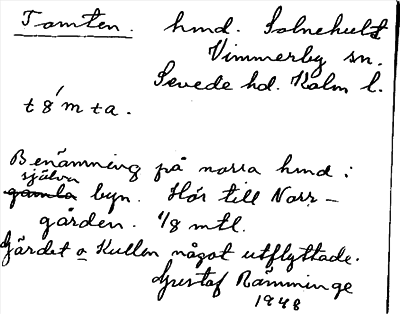 Tomten. hmd. Solnehult
Vimmerby sn.
Sevede hd. Kalm l.
t 8́ m t a.
Benämning på norra hmd i
själva
gamla byn. Hör till Norr-
gården. 1/8 mtl.
Gärdet o Kullen något utflyttade.
Gustaf Rämminge
1948